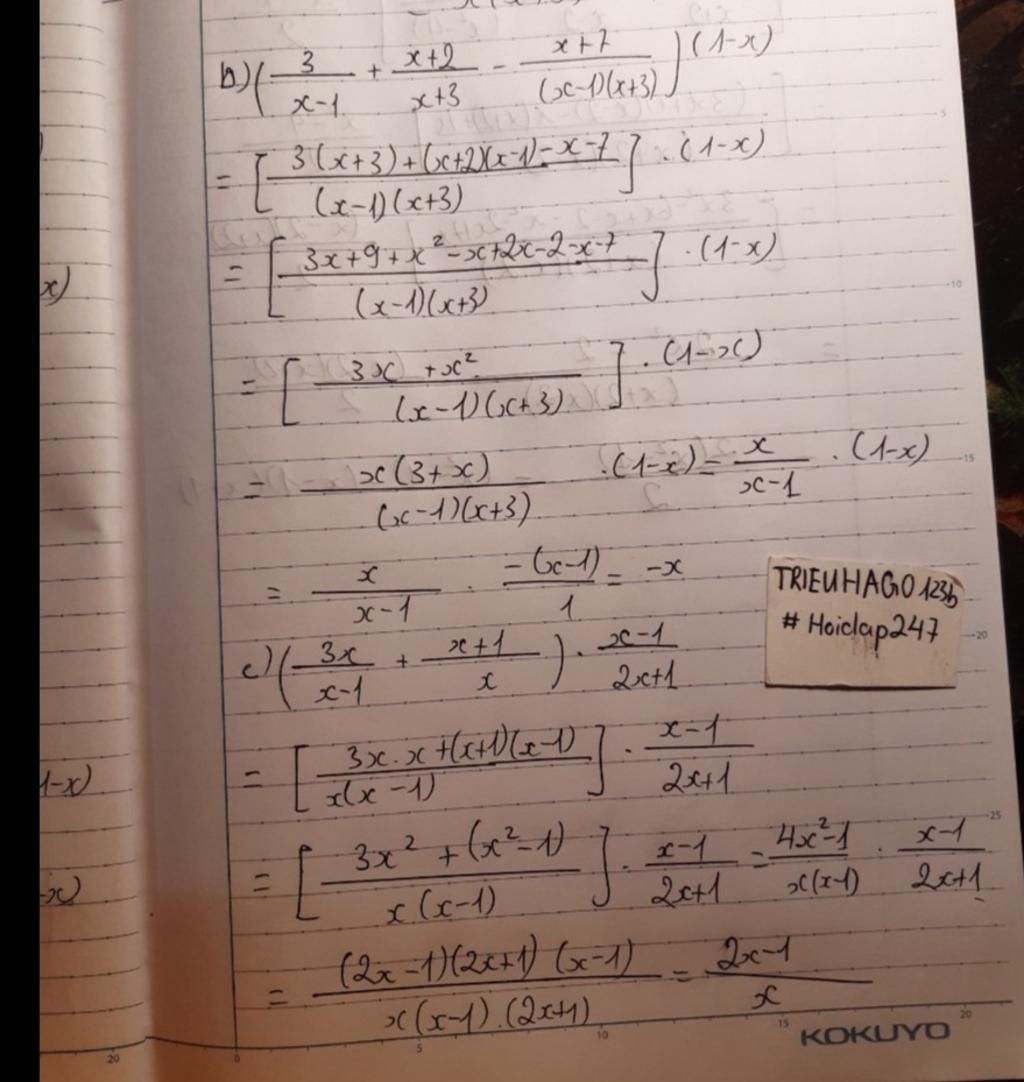 b) (3/(x-1) + (x+2)/(x+3) - (x+7)/((x-1)(x+3))) (1-x)
= [(3(x+3)+(x+2)(x-1)-x-7)/((x-1)(x+3))] . (1-x)
= [(3x+9+x²-x+2x-2-x-7)/((x-1)(x+3))] . (1-x)
= [(3x+x²)/((x-1)(x+3))] . (1-x)
= (x(3+x))/((x-1)(x+3)) . (1-x) = x/(x-1) . (1-x)
= x/(x-1) . (-(x-1))/1 = -x
TRIEUHAGO123b
# Hoidap247
c) (3x/(x-1) + (x+1)/x) . (x-1)/(2x+1)
= [(3x.x+(x+1)(x-1))/(x(x-1))] . (x-1)/(2x+1)
= [(3x²+(x²-1))/(x(x-1))] . (x-1)/(2x+1) = (4x²-1)/(x(x-1)) . (x-1)/(2x+1)
= ((2x-1)(2x+1)(x-1))/(x(x-1).(2x+1)) = (2x-1)/x
KOKUYO
x)
1-x)
-x)
5
10
15
20
25
20
0
5
10
15
20